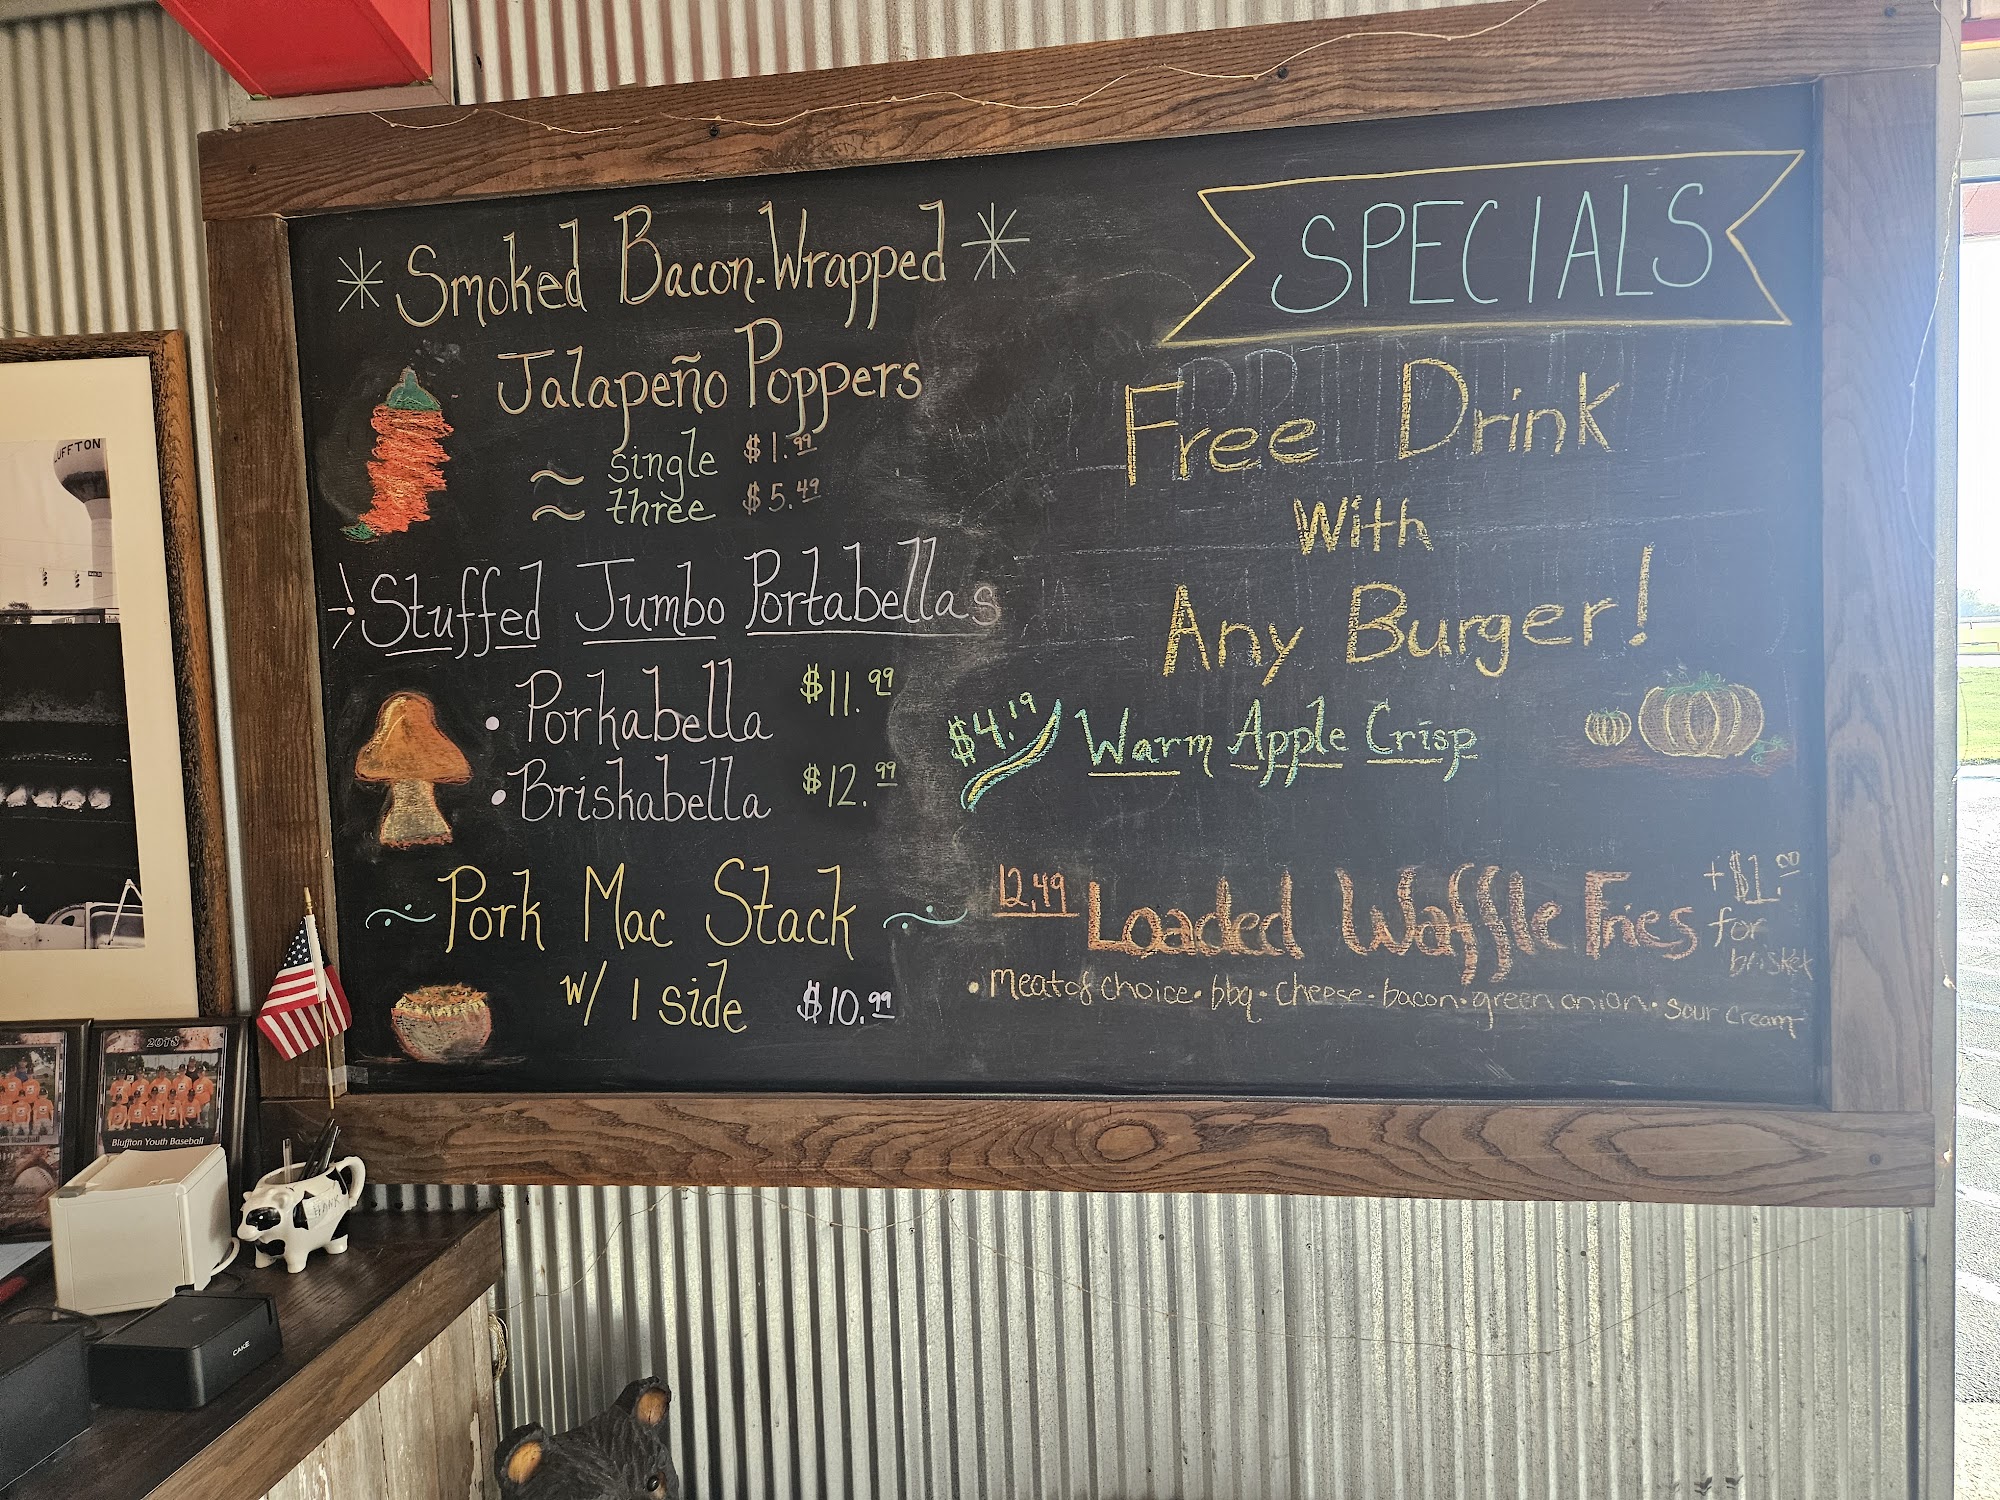 Smoked Bacon-Wrapped
Jalapeño Poppers
single $1.99
three $5.49
Stuffed Jumbo Portabellas
• Porkabella $11.99
• Briskabella $12.99
Pork Mac Stack
w/ 1 side $10.99
SPECIALS
Free Drink
With
Any Burger!
$4.19 Warm Apple Crisp
12.49 Loaded Waffle Fries +$1.00
for
brisket
• Meat of choice • bbq • cheese • bacon • green onion • sour cream
UFFTON
2018
Bluffton Youth Baseball
CAKE